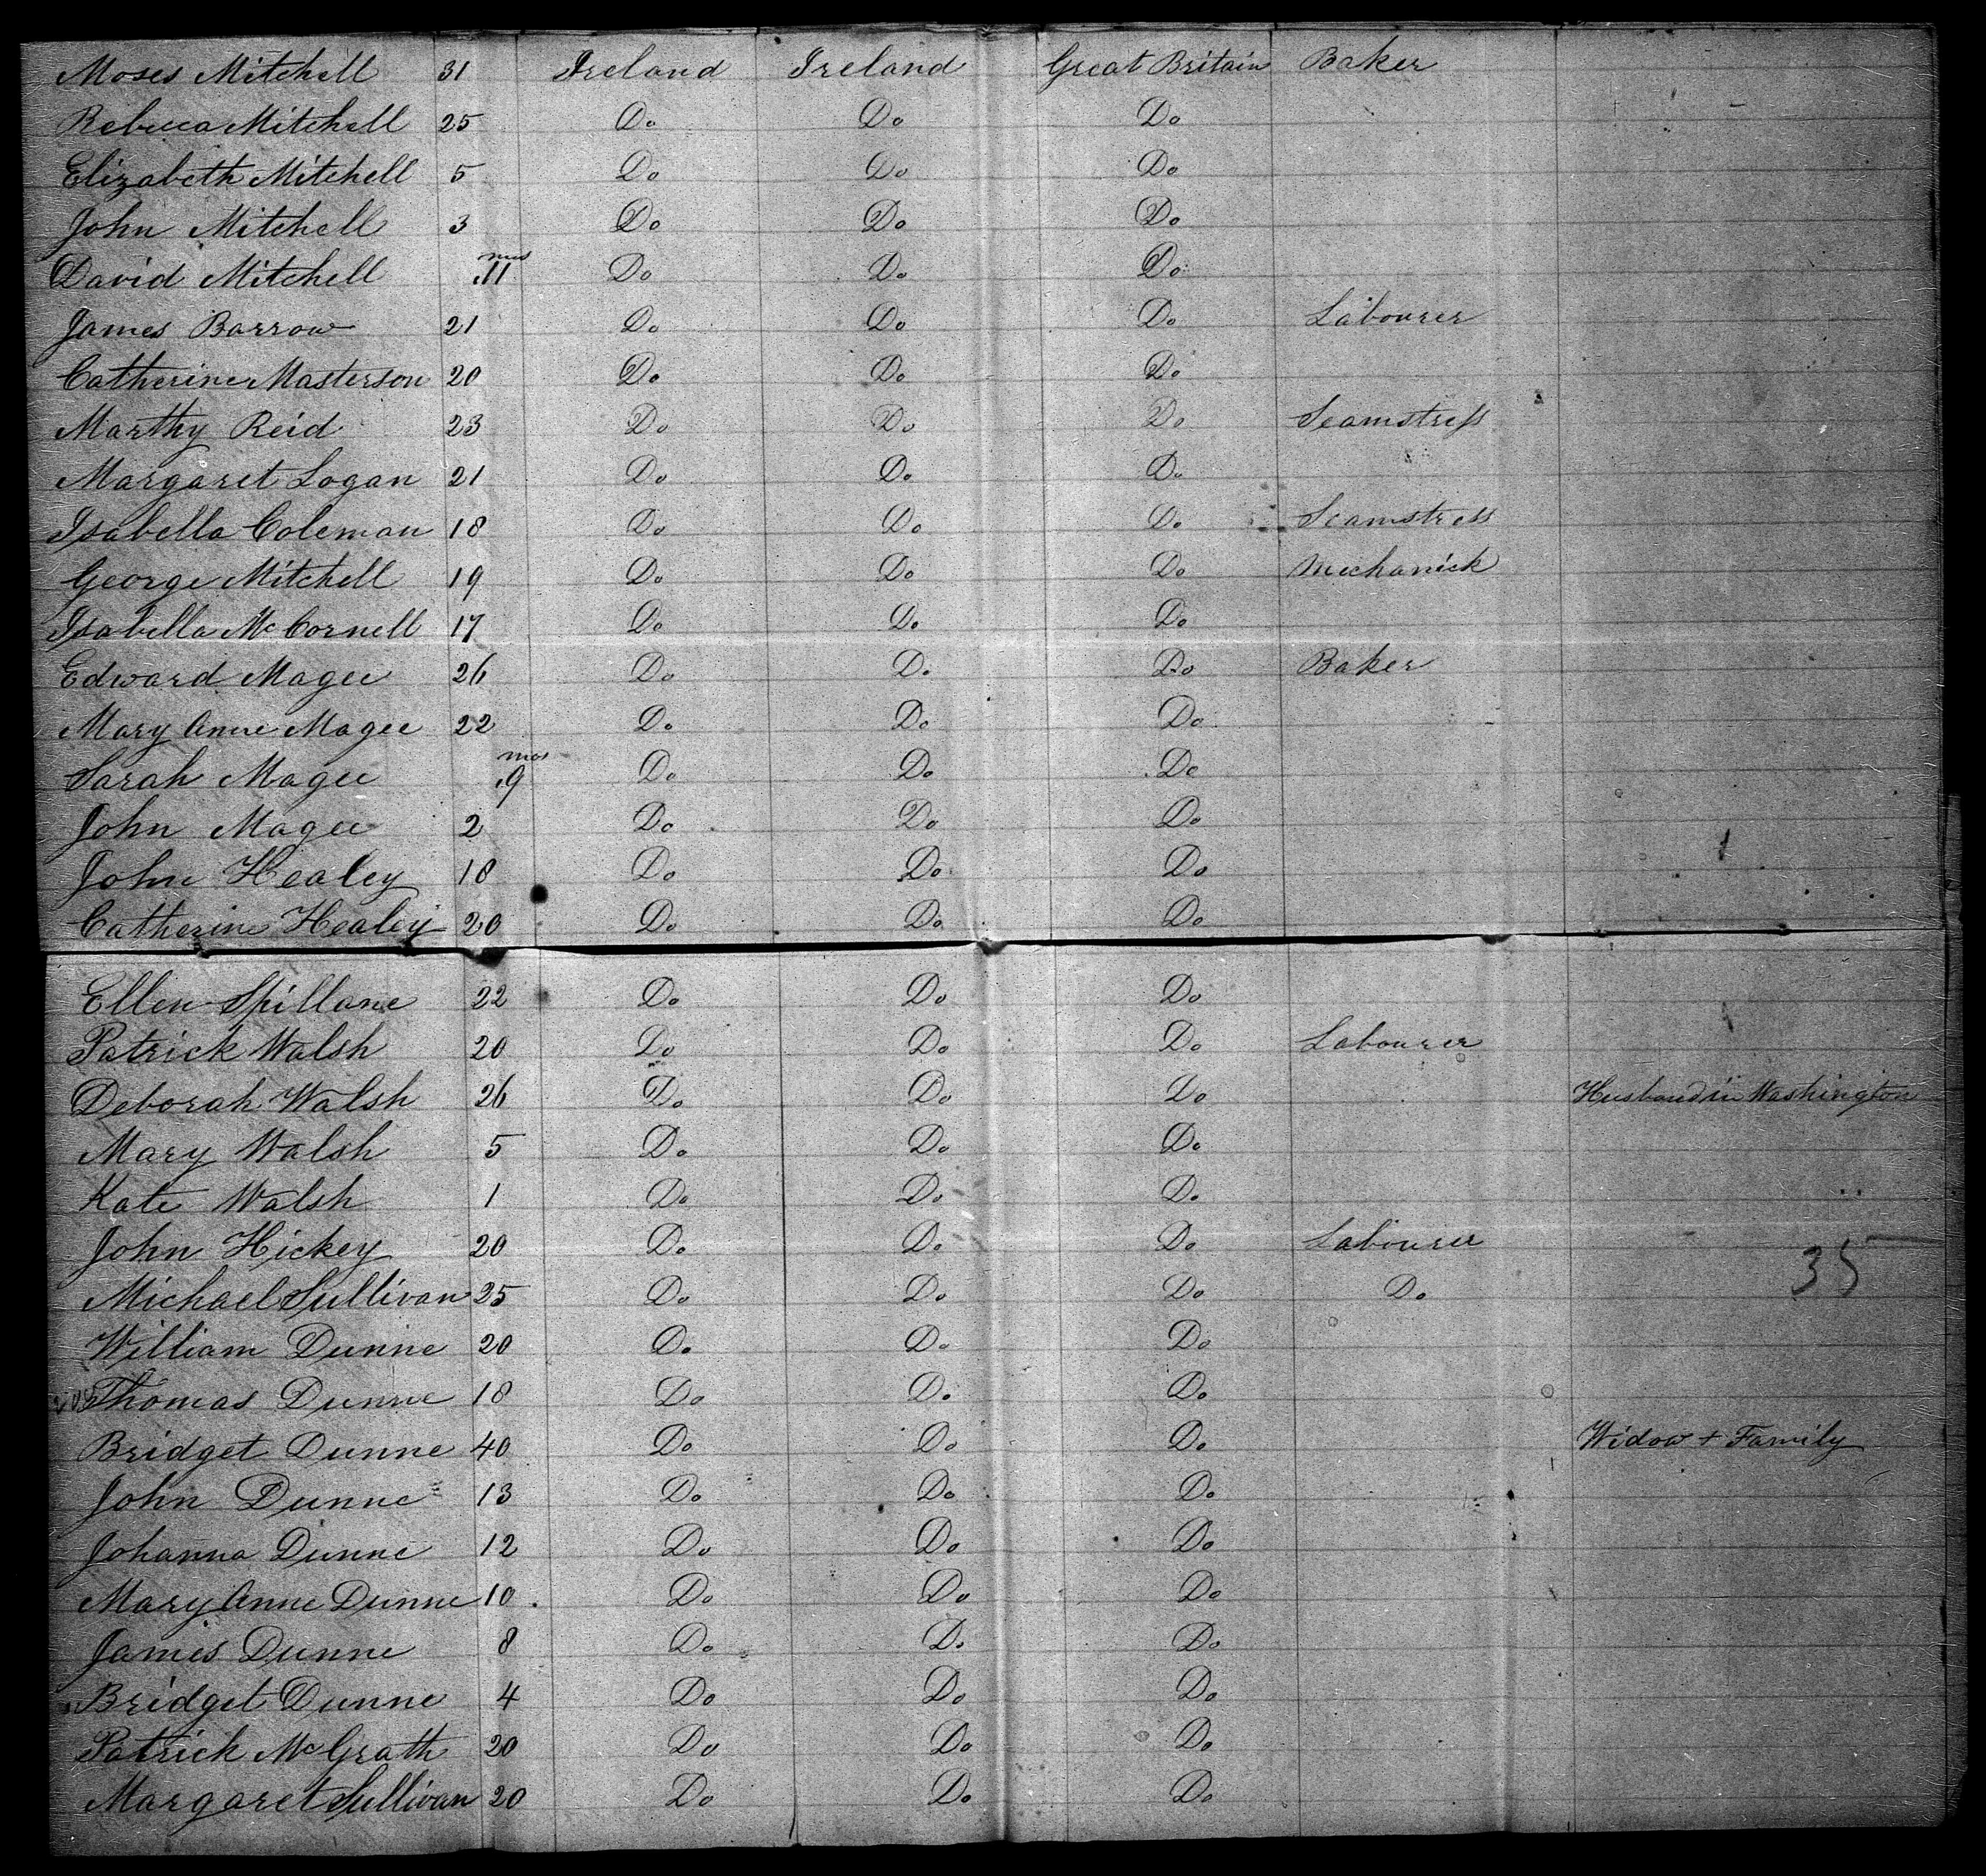 Moses Mitchell 31 Ireland Ireland Great Britain Baker
Rebecca Mitchell 25 Do Do Do
Elizabeth Mitchell 5 Do Do Do
John Mitchell 3 Do Do Do
David Mitchell 11 mos Do Do Do
James Barrow 21 Do Do Do Labourer
Catherine Masterson 20 Do Do Do
Marthy Reid 23 Do Do Do Seamstress
Margaret Logan 21 Do Do Do
Isabella Coleman 18 Do Do Do Seamstress
George Mitchell 19 Do Do Do Mechanick
Isabella McCornell 17 Do Do Do
Edward Magee 26 Do Do Do Baker
Mary Anne Magee 22 Do Do Do
Sarah Magee 9 mos Do Do Do
John Magee 2 Do Do Do
John Healey 18 Do Do Do
Catherine Healey 20 Do Do Do
Ellen Spillane 22 Do Do Do
Patrick Walsh 20 Do Do Do Labourer
Deborah Walsh 26 Do Do Do Husband in Washington
Mary Walsh 5 Do Do Do
Kate Walsh 1 Do Do Do
John Hickey 20 Do Do Do Labourer
35
Michael Sullivan 25 Do Do Do Do
William Dunne 20 Do Do Do
Thomas Dunne 18 Do Do Do
Bridget Dunne 40 Do Do Do Widow + Family
John Dunne 13 Do Do Do
Johanna Dunne 12 Do Do Do
Mary Anne Dunne 10 Do Do Do
James Dunne 8 Do Do Do
Bridget Dunne 4 Do Do Do
Patrick McGrath 20 Do Do Do
Margaret Sullivan 20 Do Do Do